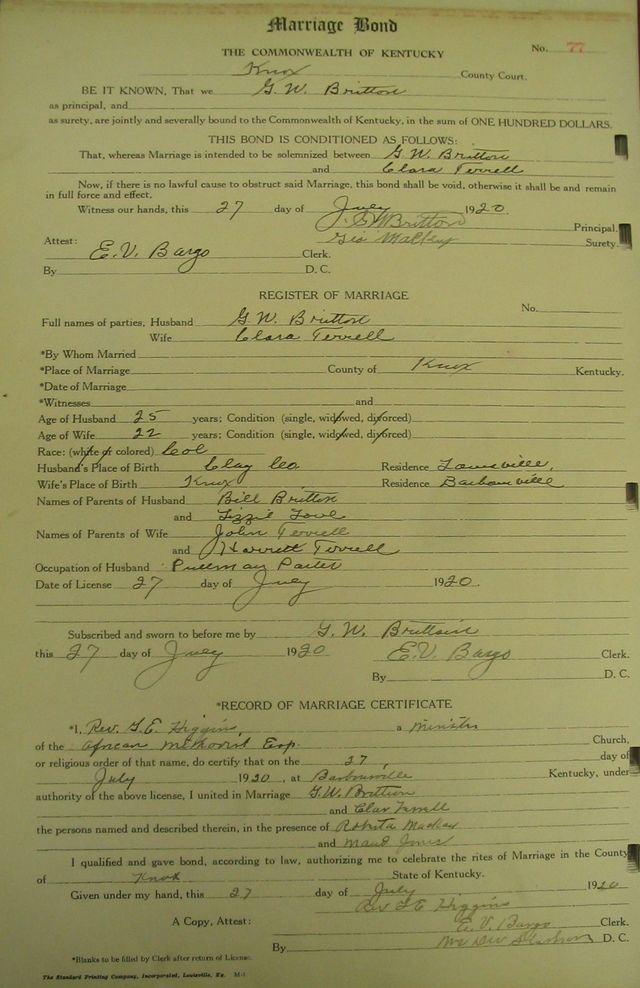 Marriage Bond
THE COMMONWEALTH OF KENTUCKY No. 77
Knox County Court.
BE IT KNOWN, That we G. W. Britton
as principal, and
as surety, are jointly and severally bound to the Commonwealth of Kentucky, in the sum of ONE HUNDRED DOLLARS.
THIS BOND IS CONDITIONED AS FOLLOWS:
That, whereas Marriage is intended to be solemnized between G. W. Britton
and Clara Terrell
Now, if there is no lawful cause to obstruct said Marriage, this bond shall be void, otherwise it shall be and remain
in full force and effect.
Witness our hands, this 27 day of July 1920.
G W Britton Principal.
Attest: Geo Mackey Surety.
E. V. Bargo Clerk.
By D. C.
REGISTER OF MARRIAGE
No.
Full names of parties, Husband G. W. Britton
Wife Clara Terrell
*By Whom Married
*Place of Marriage County of Knox Kentucky.
*Date of Marriage
*Witnesses and
Age of Husband 25 years; Condition (single, widowed, divorced)
Age of Wife 22 years; Condition (single, widowed, divorced)
Race: (white or colored) Col
Husband's Place of Birth Clay Co Residence Louisville,
Wife's Place of Birth Knox Residence Barbourville
Names of Parents of Husband Bill Britton
and Lizzie Love
Names of Parents of Wife John Terrell
and Harrett Terrell
Occupation of Husband Pullman Porter
Date of License 27 day of July 1920.
Subscribed and sworn to before me by G. W. Brittain
this 27 day of July 1920 E. V. Bargo Clerk.
By D. C.
*RECORD OF MARRIAGE CERTIFICATE
*I, Rev. G. E. Higgins, a Minister
of the African Methodist Esp. Church,
or religious order of that name, do certify that on the 27, day of
July 1920, at Barbourville Kentucky, under
authority of the above license, I united in Marriage G. W. Britton
and Clar Terrell
the persons named and described therein, in the presence of Robita Mackey
and Maud Jones
I qualified and gave bond, according to law, authorizing me to celebrate the rites of Marriage in the County
of Knox State of Kentucky.
Given under my hand, this 27 day of July 1920
Rev G E Higgins
A Copy, Attest: E. V. Bargo Clerk.
By D. C.
*Blanks to be filled by Clerk after return of License.
The Standard Printing Company, Incorporated, Louisville, Ky. M-1